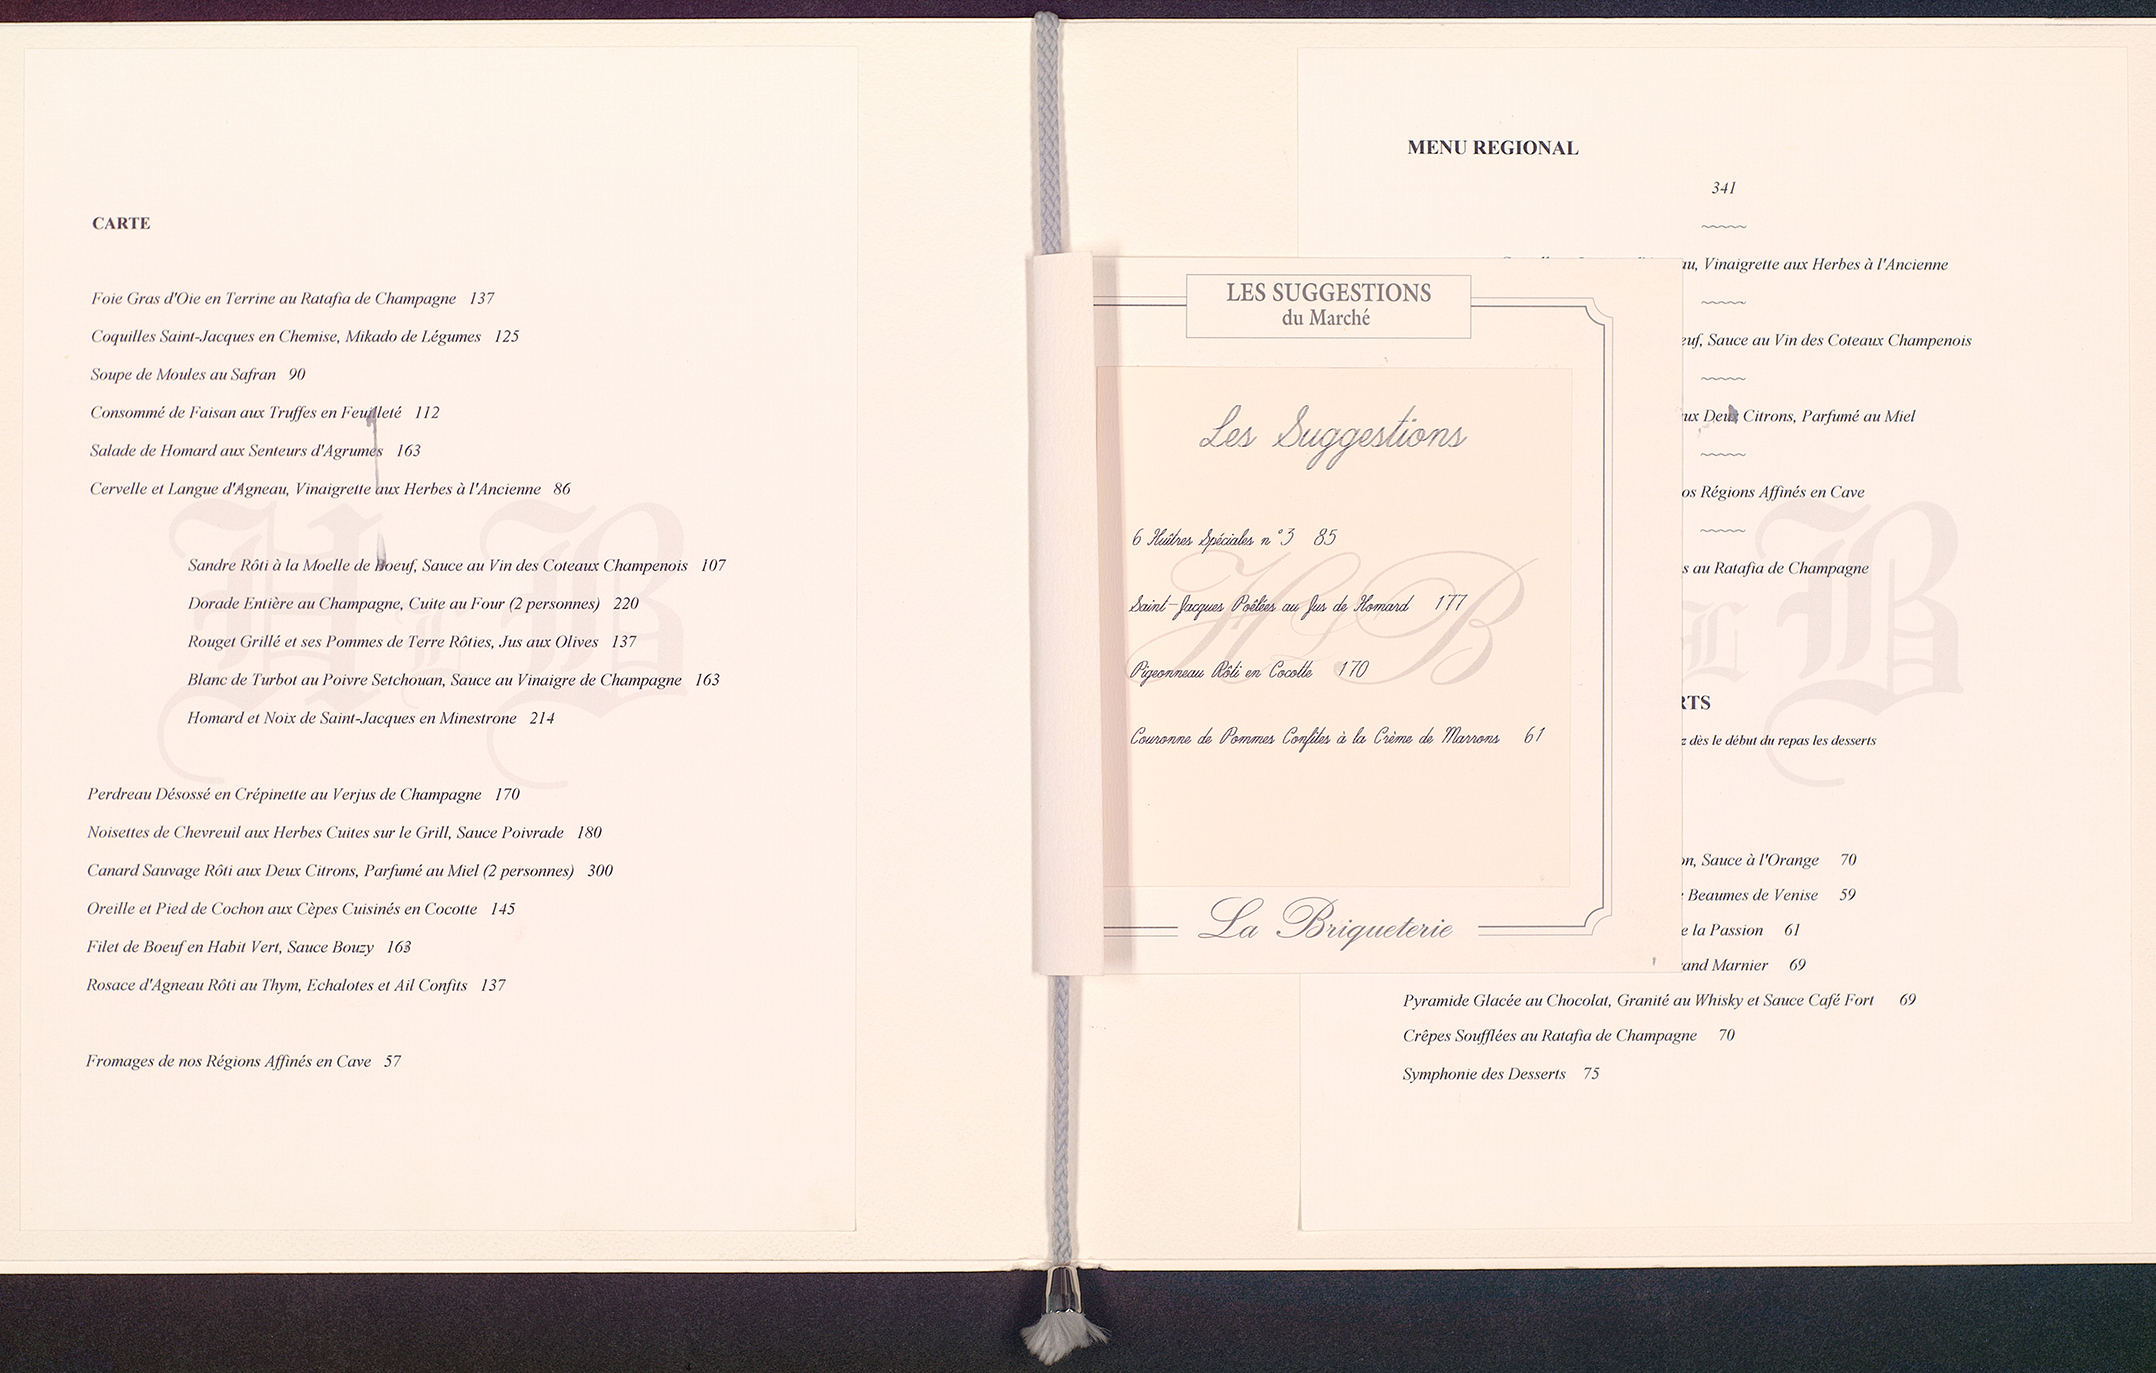 CARTE
Foie Gras d'Oie en Terrine au Ratafia de Champagne 137
Coquilles Saint-Jacques en Chemise, Mikado de Légumes 125
Soupe de Moules au Safran 90
Consommé de Faisan aux Truffes en Feuilleté 112
Salade de Homard aux Senteurs d'Agrumes 163
Cervelle et Langue d'Agneau, Vinaigrette aux Herbes à l'Ancienne 86
Sandre Rôti à la Moelle de Boeuf, Sauce au Vin des Coteaux Champenois 107
Dorade Entière au Champagne, Cuite au Four (2 personnes) 220
Rouget Grillé et ses Pommes de Terre Rôties, Jus aux Olives 137
Blanc de Turbot au Poivre Setchouan, Sauce au Vinaigre de Champagne 163
Homard et Noix de Saint-Jacques en Minestrone 214
Perdreau Désossé en Crépinette au Verjus de Champagne 170
Noisettes de Chevreuil aux Herbes Cuites sur le Grill, Sauce Poivrade 180
Canard Sauvage Rôti aux Deux Citrons, Parfumé au Miel (2 personnes) 300
Oreille et Pied de Cochon aux Cèpes Cuisinés en Cocotte 145
Filet de Boeuf en Habit Vert, Sauce Bouzy 163
Rosace d'Agneau Rôti au Thym, Echalotes et Ail Confits 137
Fromages de nos Régions Affinés en Cave 57
H L B
LES SUGGESTIONS
du Marché
Les Suggestions
6 Huîtres Spéciales n°3 85
Saint-Jacques Poêlées au Jus de Homard 177
Pigeonneau Rôti en Cocotte 170
Couronne de Pommes Confites à la Crème de Marrons 61
H L B
La Briqueterie
MENU REGIONAL
341
au, Vinaigrette aux Herbes à l'Ancienne
euf, Sauce au Vin des Coteaux Champenois
ux Deux Citrons, Parfumé au Miel
os Régions Affinés en Cave
s au Ratafia de Champagne
L B
RTS
z dès le début du repas les desserts
on, Sauce à l'Orange 70
Beaumes de Venise 59
e la Passion 61
and Marnier 69
Pyramide Glacée au Chocolat, Granité au Whisky et Sauce Café Fort 69
Crêpes Soufflées au Ratafia de Champagne 70
Symphonie des Desserts 75